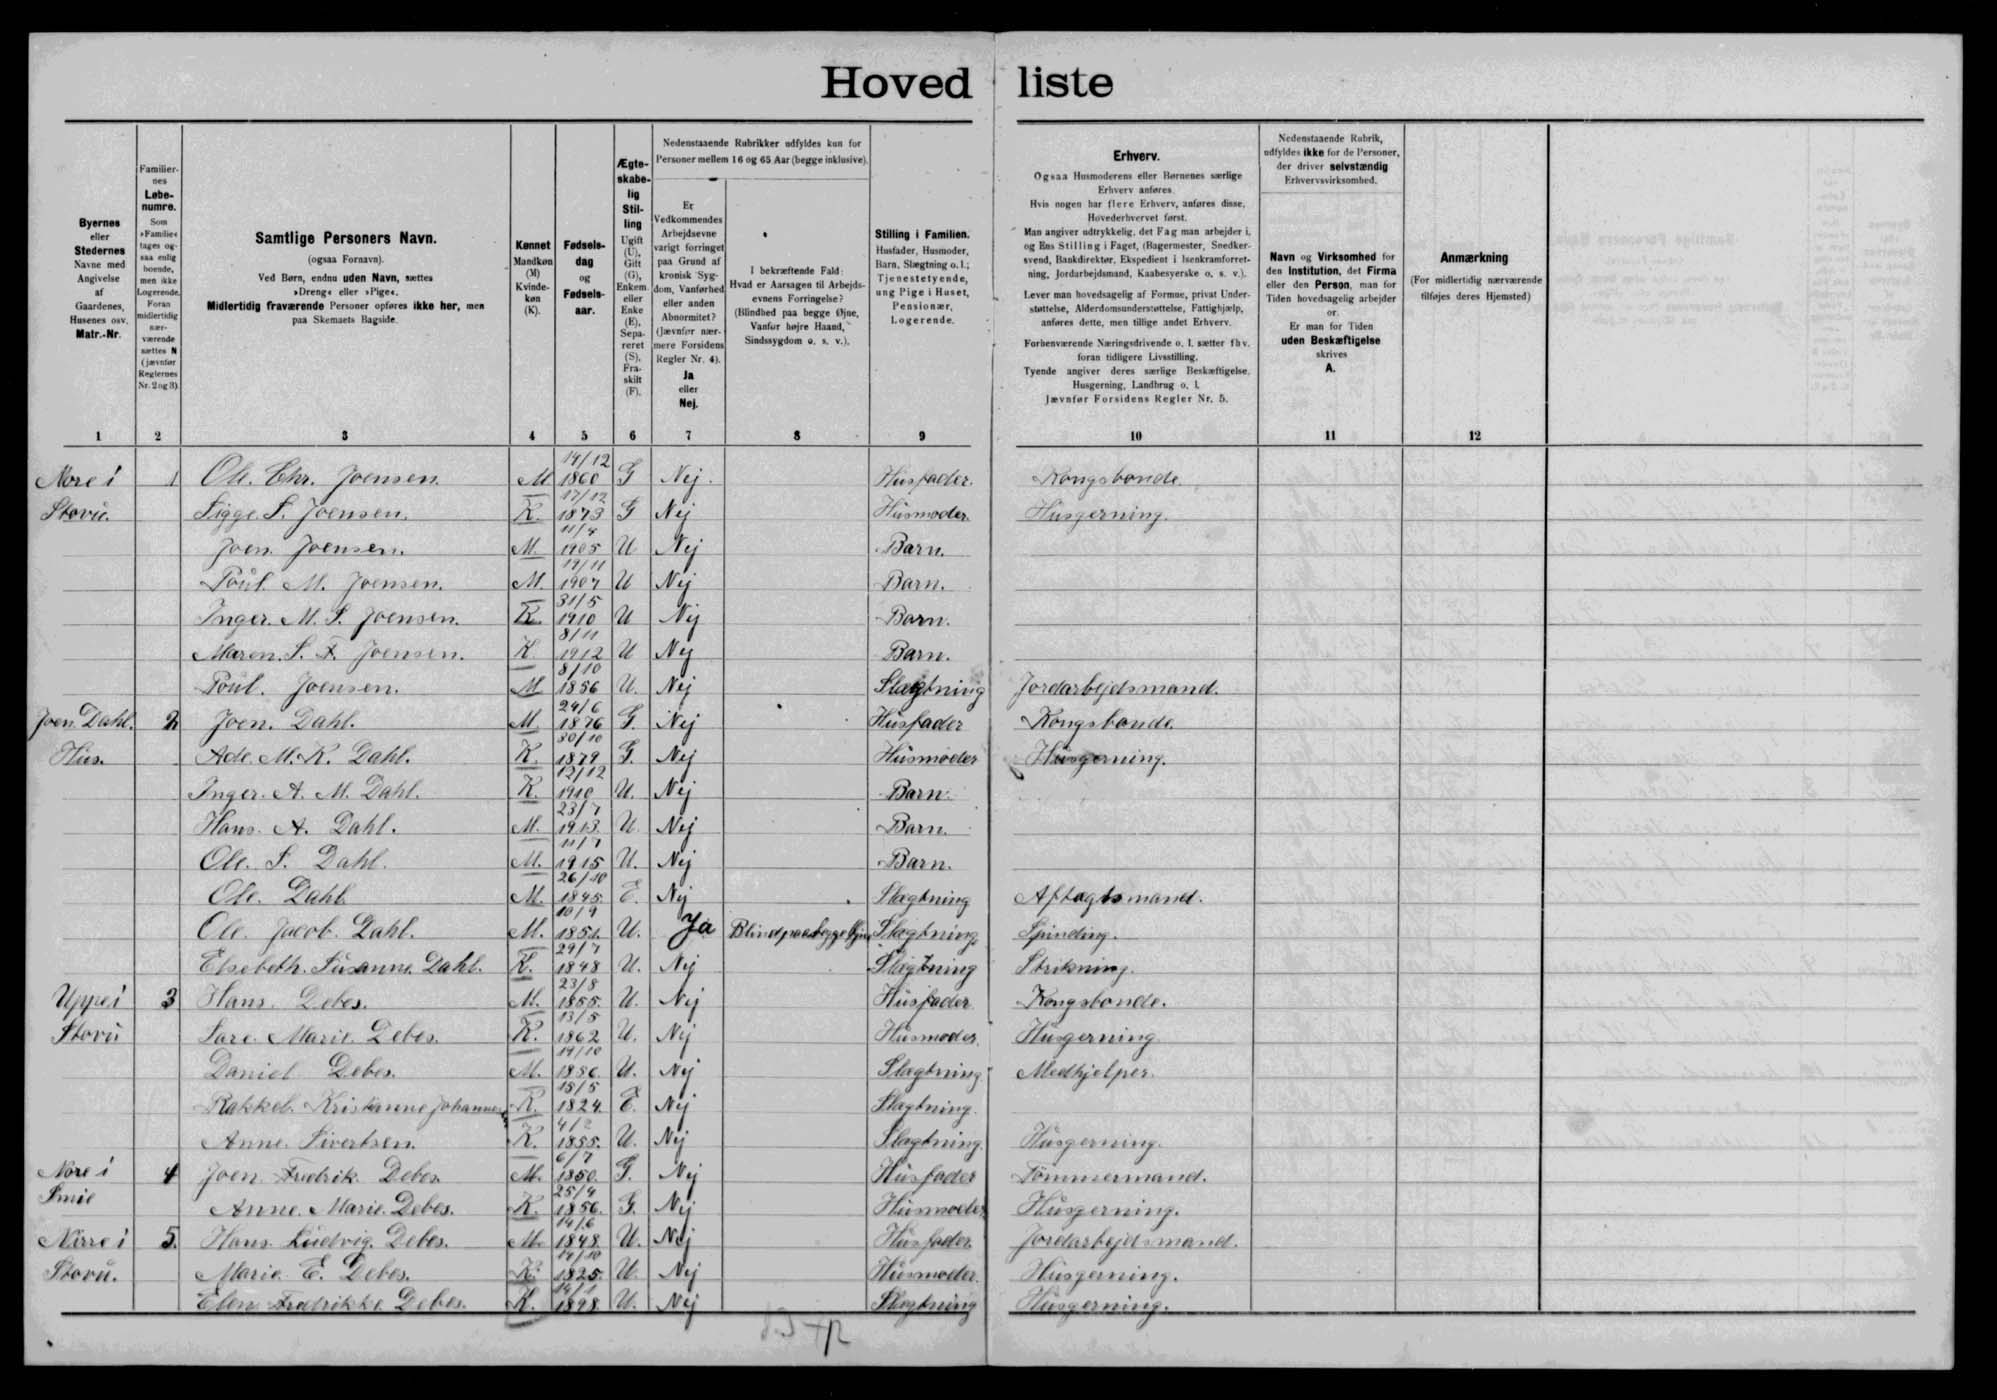 Hoved liste
Byernes
eller
Stedernes
Navne med
Angivelse
af
Gaardenes,
Husenes osv.
Matr.-Nr.
Familier-
nes
Løbe-
numre.
Som
»Familie«
tages og-
saa enlig
boende,
men ikke
Logerende.
Foran
midlertidig
nær-
værende
sættes N
(jævnfør
Reglernes
Nr. 2 og 3).
Samtlige Personers Navn.
(ogsaa Fornavn).
Ved Børn, endnu uden Navn, sættes
»Dreng« eller »Pige«.
Midlertidig fraværende Personer opføres ikke her, men
paa Skemaets Bagside.
Kønnet
Mandkøn
(M)
Kvinde-
køn
(K).
Fødsels-
dag
og
Fødsels-
aar.
Ægte-
skabe-
lig
Stil-
ling
Ugift
(U),
Gift
(G),
Enkem.
eller
Enke
(E),
Sepa-
reret
(S),
Fra-
skilt
(F).
Nedenstaaende Rubrikker udfyldes kun for
Personer mellem 16 og 65 Aar (begge inklusive).
Er
Vedkommendes
Arbejdsevne
varigt forringet
paa Grund af
kronisk Syg-
dom, Vanførhed
eller anden
Abnormitet?
(Jævnfør nær-
mere Forsidens
Regler Nr. 4).
Ja
eller
Nej.
I bekræftende Fald:
Hvad er Aarsagen til Arbejds-
evnens Forringelse?
(Blindhed paa begge Øjne,
Vanfør højre Haand,
Sindssygdom o. s. v.).
Stilling i Familien.
Husfader, Husmoder,
Barn, Slægtning o. l.;
Tjenestetyende,
ung Pige i Huset,
Pensionær,
Logerende.
Erhverv.
Ogsaa Husmoderens eller Børnenes særlige
Erhverv anføres.
Hvis nogen har flere Erhverv, anføres disse,
Hovederhvervet først.
Man angiver udtrykkelig, det Fag man arbejder i,
og Ens Stilling i Faget, (Bagermester, Snedker-
svend, Bankdirektør, Ekspedient i Isenkramforret-
ning, Jordarbejdsmand, Kaabesyerske o. s. v.).
Lever man hovedsagelig af Formue, privat Under-
støttelse, Alderdomsunderstøttelse, Fattighjælp,
anføres dette, men tillige andet Erhverv.
Forhenværende Næringsdrivende o. l. sætter fhv.
foran tidligere Livsstilling.
Tyende angiver deres særlige Beskæftigelse,
Husgerning, Landbrug o. l.
Jævnfør Forsidens Regler Nr. 5.
Nedenstaaende Rubrik,
udfyldes ikke for de Personer,
der driver selvstændig
Erhvervsvirksomhed.
Navn og Virksomhed for
den Institution, det Firma
eller den Person, man for
Tiden hovedsagelig arbejder
for.
Er man for Tiden
uden Beskæftigelse
skrives
A.
Anmærkning
(For midlertidig nærværende
tilføjes deres Hjemsted)
1 2 3 4 5 6 7 8 9 10 11 12
Nore i 1 Ole. Chr. Joensen. M 14/12 1860 G Nej. Husfader. Kongsbonde.
Stovu. Sigge S. Joensen. K. 17/12 1873 G Nej Husmoder. Husgerning.
Joen. Joensen. M. 11/4 1905 U Nej Barn.
Poul. M. Joensen. M. 19/11 1907 U Nej Barn.
Inger. M. S. Joensen. K. 31/5 1910 U Nej Barn.
Maren. S. F. Joensen. K. 8/11 1912 U Nej Barn.
Poul. Joensen. M 8/10 1856 U. Nej Slægtning Jordarbejdsmand.
Joen Dahl. 2 Joen. Dahl. M. 24/6 1876 G. Nej Husfader Kongsbonde.
Hus. Ade. M. K. Dahl. K. 30/10 1879 G. Nej Husmoder Husgerning.
Inger. A. M. Dahl. K. 12/12 1910 U. Nej Barn.
Hans. A. Dahl. M. 23/7 1913. U. Nej Barn.
Ole. S. Dahl. M. 11/7 1915 U. Nej Barn.
Ole. Dahl M. 26/10 1845. E. Nej Slægtning Aftægtsmand.
Ole. Jacob. Dahl. M. 10/9 1851. U. Ja Blind paa begge Øjne Slægtning. Spinding.
Elsebeth. Susanne. Dahl. K. 29/7 1848 U. Nej Slægtning Strikning.
Uppe i 3 Hans. Debes. M. 23/8 1855. U. Nej Husfader Kongsbonde.
Stovu Sare. Marie. Debes. K. 13/5 1862 U. Nej Husmoder. Husgerning
Daniel Debes. M. 19/10 1886. U. Nej Slægtning Medhjelper.
Rakkel. Kristianne Johannesen K. 18/5 1824. E. Nej Slægtning.
Anne. Sivertsen. K. 4/2 1855. U. Nej Slægtning. Husgerning.
Nore i 4 Joen. Fredrik. Debes. M. 6/7 1850. G. Nej Husfader Tømmermand.
Smie Anne. Marie. Debes. K. 25/4 1856. G. Nej Husmoder Husgerning.
Nirre i 5. Hans. Ludvig. Debes. M. 14/6 1848. U. Nej Husfader. Jordarbejdsmand.
Stovu. Marie. E. Debes. K. 19/10 1825. U. Nej Husmoder. Husgerning.
Elen Fredrikke. Debes. K. 14/1 1898. U. Nej Slægtning Husgerning.